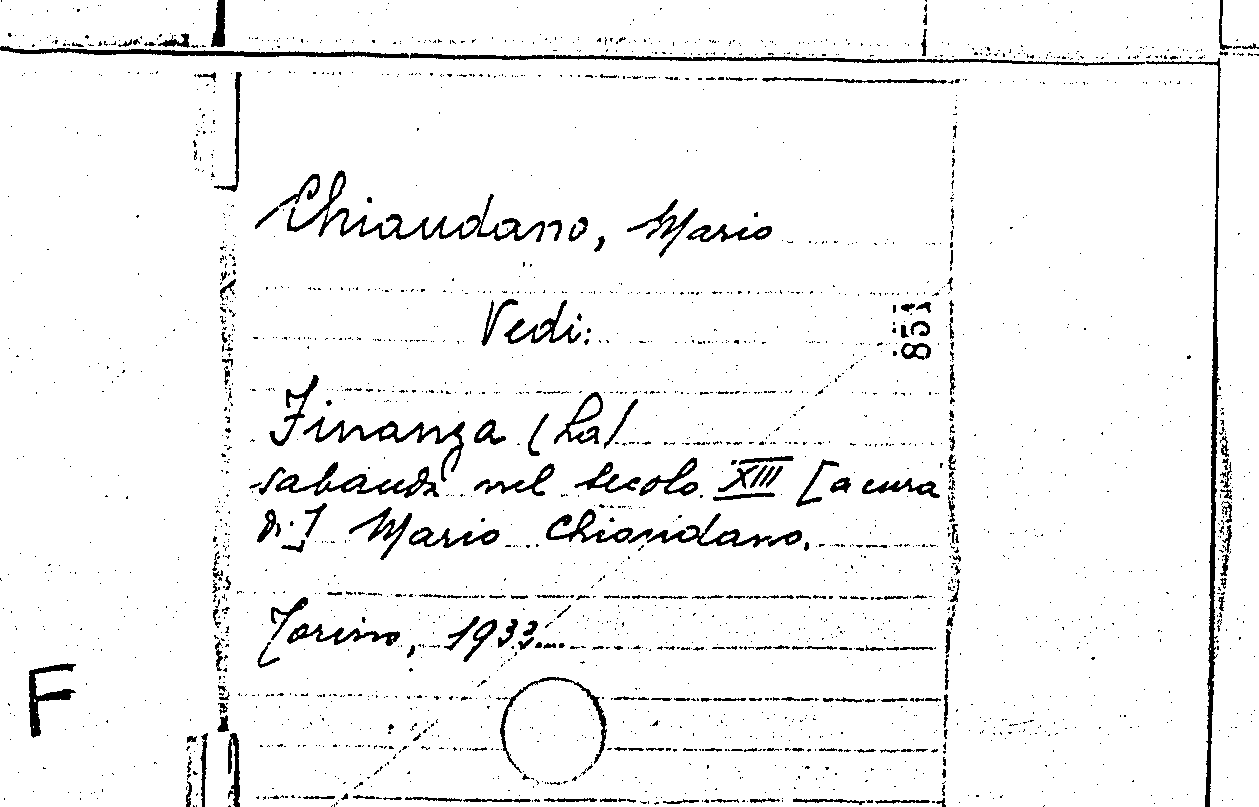 Chiaudano, Mario
Vedi:
851
Finanza (La)
sabauda nel secolo XIII [a cura
di] Mario Chiaudano.
Torino, 1933...
F